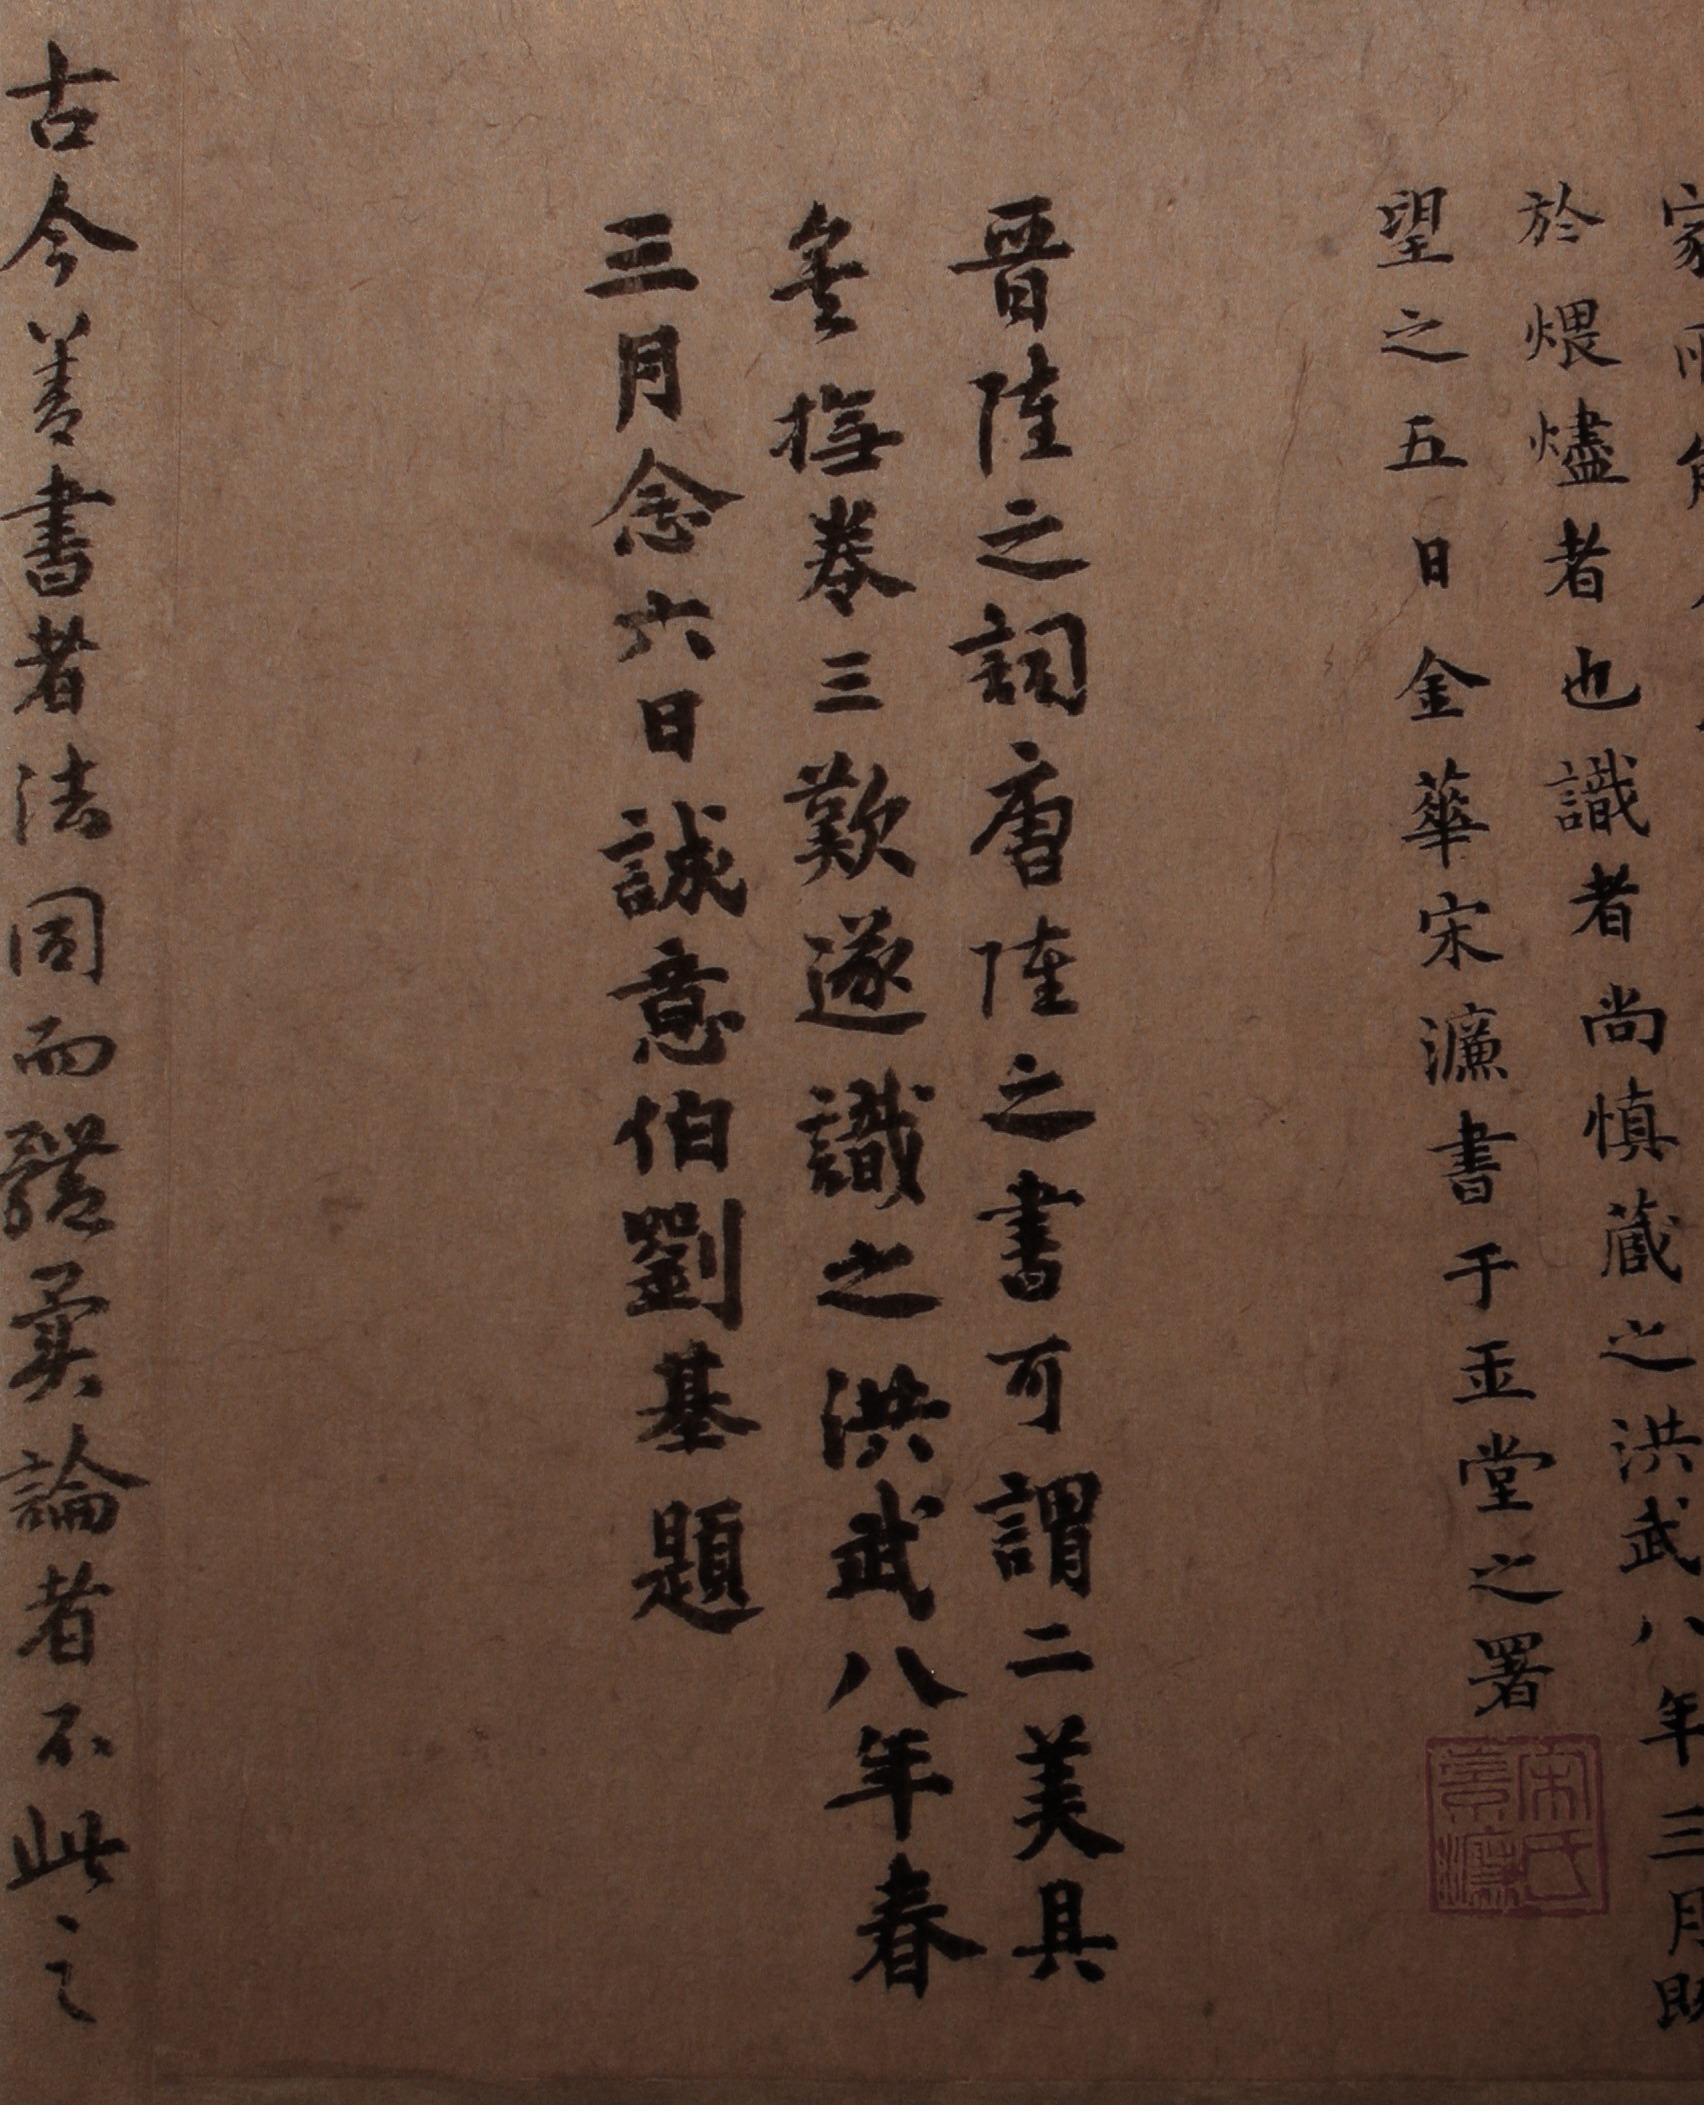 家
於煨燼者也識者尚慎藏之洪武八年三月
望之五日金華宋濂書于玉堂之署
宋氏景濂
晋陸之詞唐陸之書可謂二美具
矣撫卷三歎遂識之洪武八年春
三月念六日誠意伯劉基題
古今善書者法同而體異論者不此之